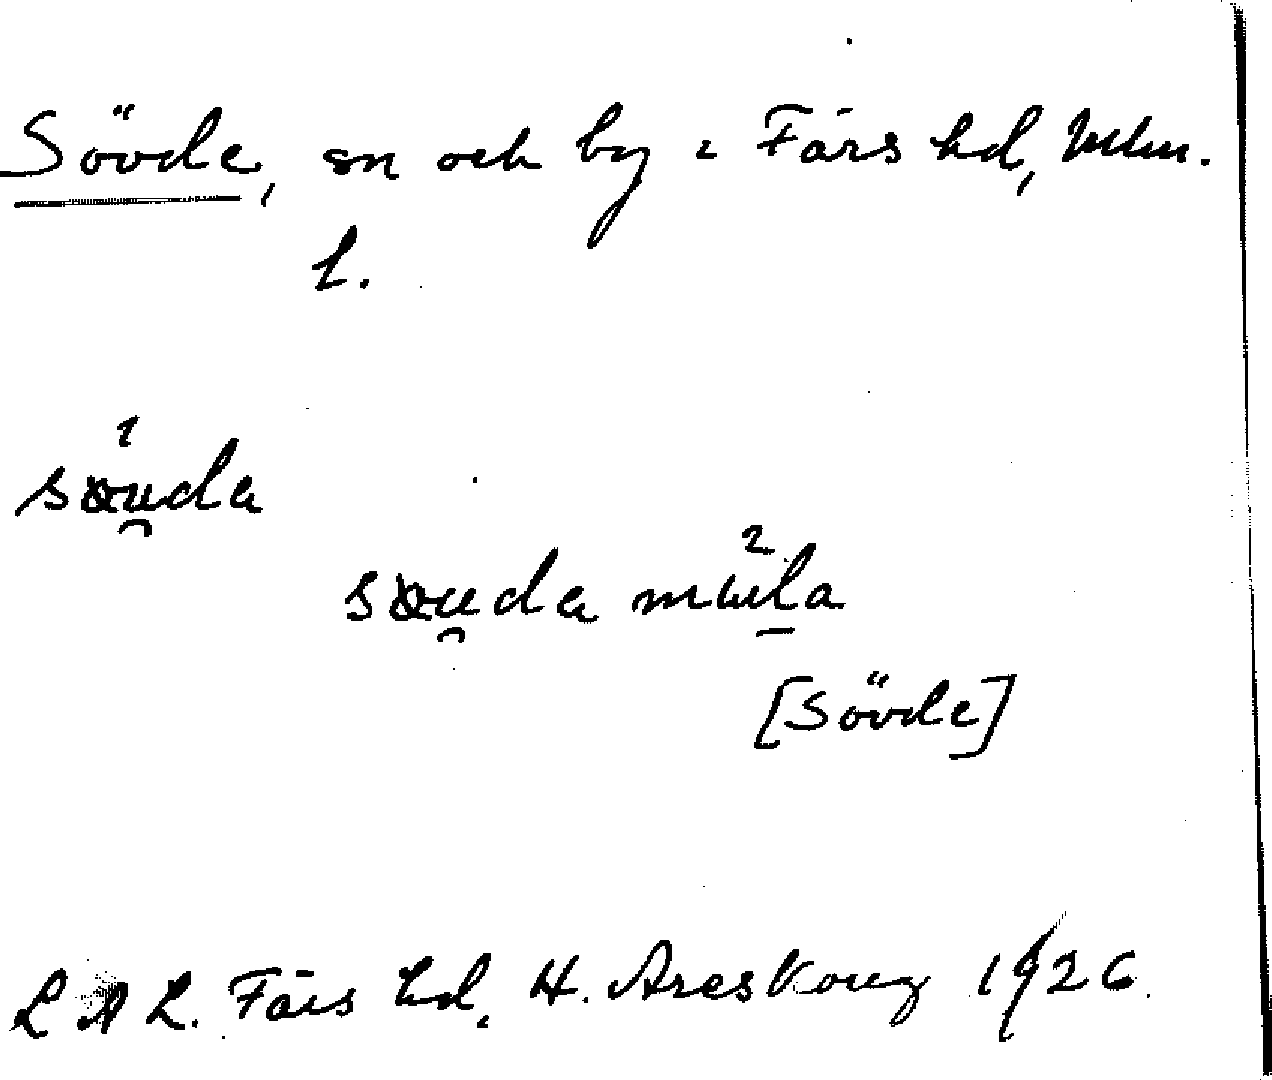 Sövde, sn och by i Färs hd, Mlm.
l.
söu̯da
söu̯da
[Sövde]
L A L. Färs hd, H. Areskoug 1926